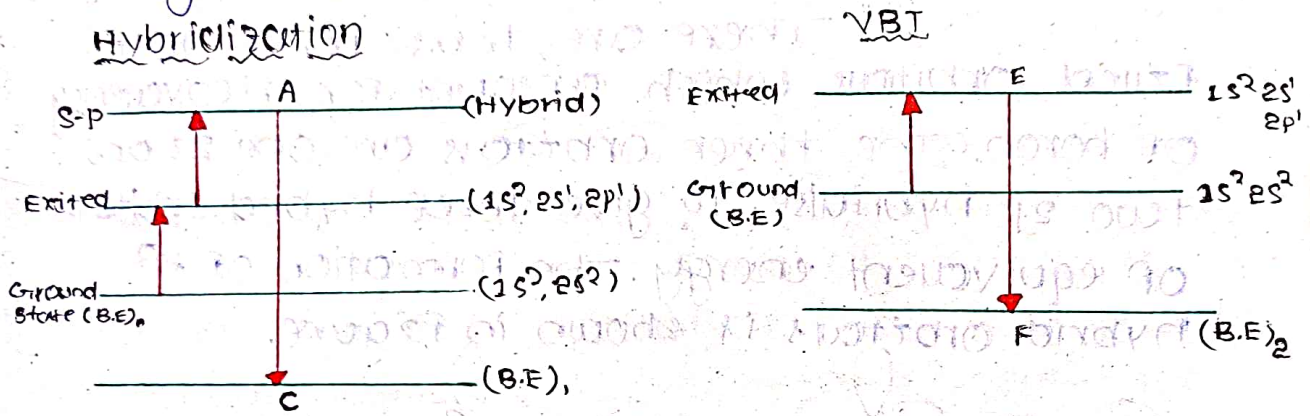 Hybridization
A
S-P
(Hybrid)
Exited
(1S², 2S', 2P')
Ground
State (B.E)
(1S², 2S²)
(B.E)₁
C
VBT
Exited
E
1S² 2S'
2P'
Ground
(B.E)
1S² 2S²
F
(B.E)₂